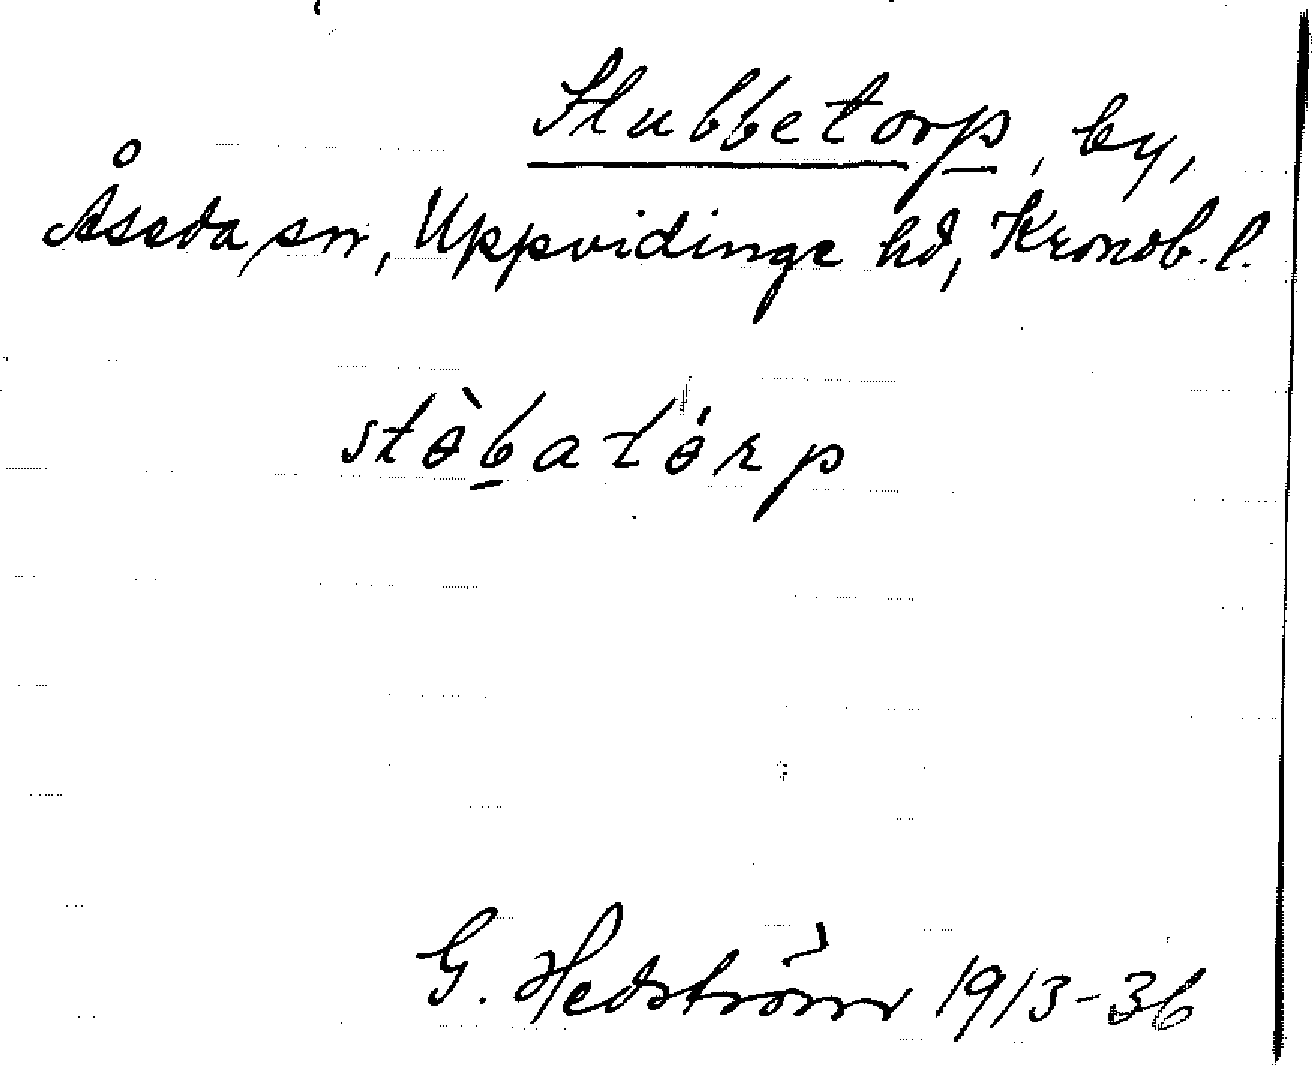 Stubbetorp, by,
Åseda sn, Uppvidinge hd, Kronob. l.
stɵ̀b̲atɵ́rp
G. Hedström 1913-36